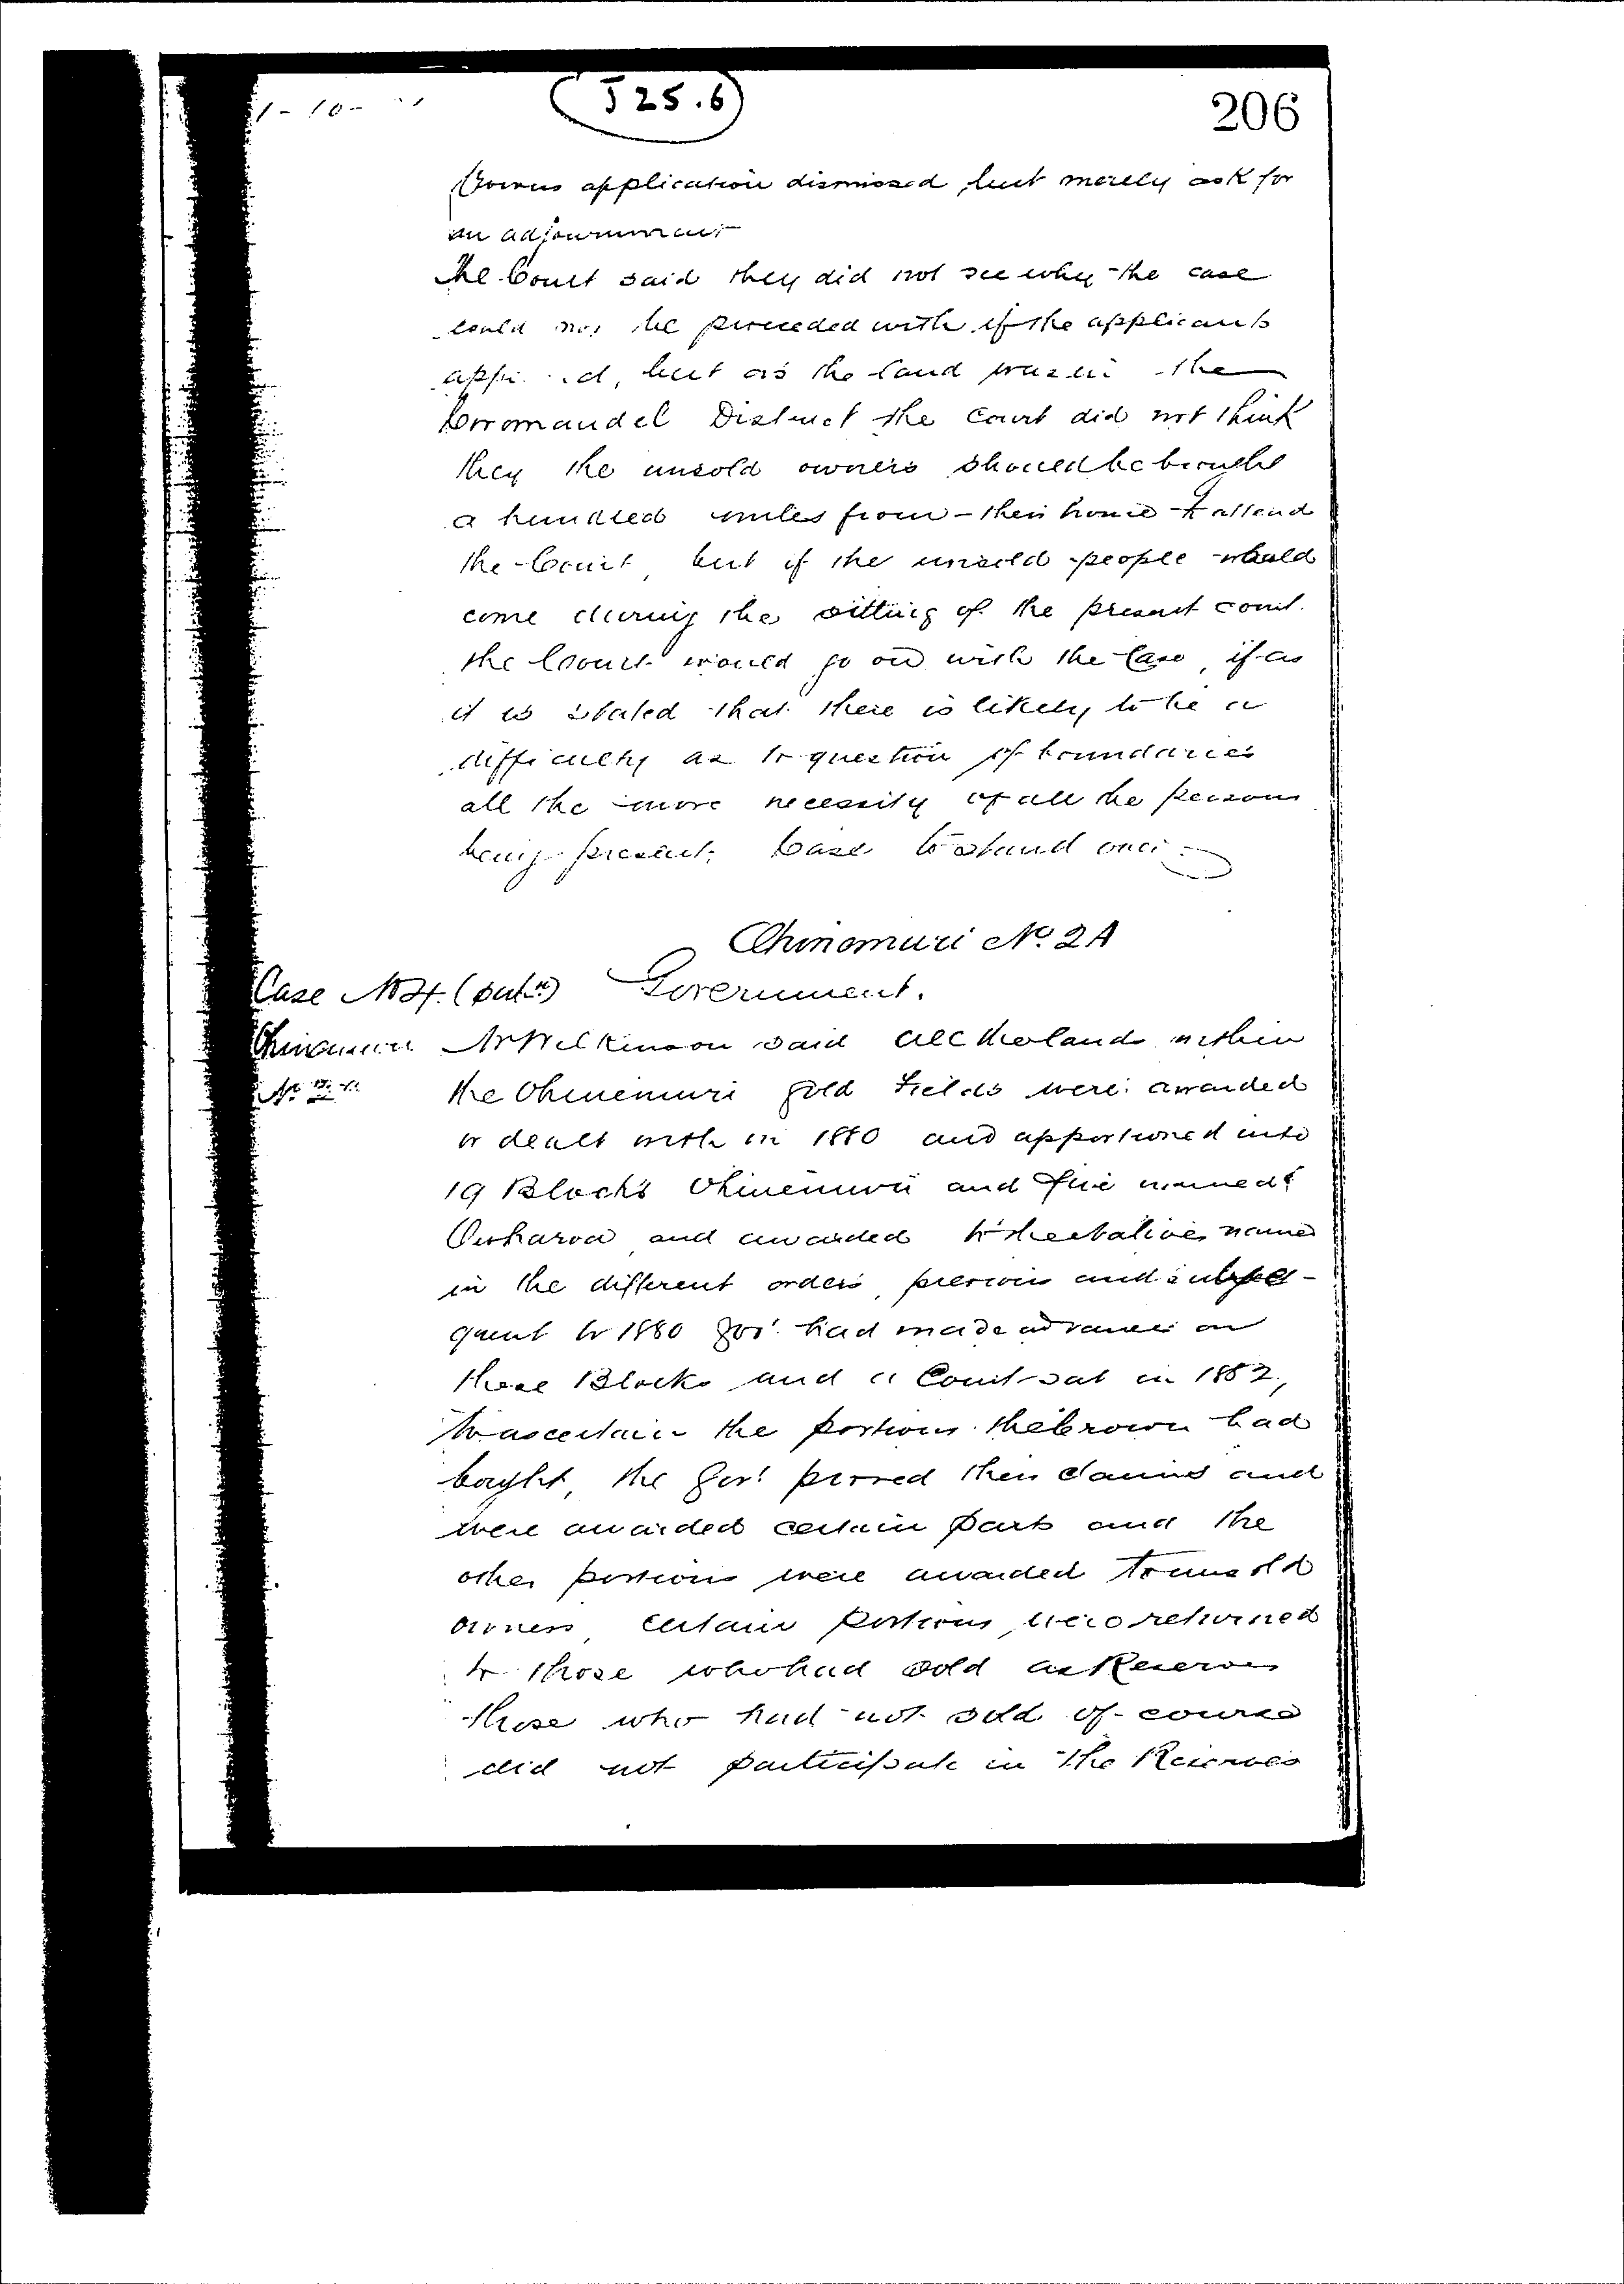 525.6
206
Crowns application dismissed, but merely ask for
an adjournment
The Court said they did not see why the case
could not be proceeded with if the applicants
but as the land was in the
Coromandel District the Court did not think
they the unsold owners should be brought
a hundred miles from their home to attend
the Court, but if the unsold people would
come during the sitting of the present court.
the Court would go on with the Case, if as
it is stated that there is likely to be a
difficulty as to question of boundaries
all the more necessity of all the persons
being present. Case to stand over
Ohinemuri No. 2A
Case No
Government.
Ohinemuri Mr Wilkinson said all the lands within
No
the Ohinemuri Gold Fields were awarded
or dealt with in 1880 and apportioned into
19 Blocks Ohinemuri and five named
and awarded to the native names
in the different orders, previous and subse-
quent to 1880 Govt. had made advances on
these Blocks and a Court sat in 1882,
to ascertain the portions the Crown had
boght, the Govt proved their claims and
were awarded certain parts and the
other portions were awarded to unsold
owners, certain portions were returned
to those who had sold as Reserves
those who had not sold of course
did not participate in the Reserves